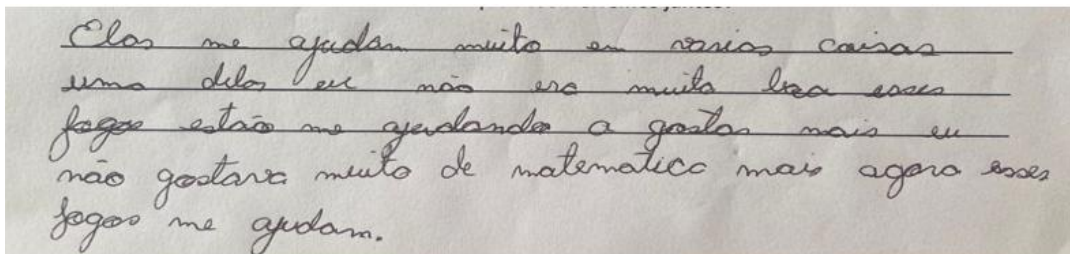 Elas me ajudam muito em varias coisas
uma delas eu não era muito boa esses
jogos estão me ajudando a gostar mais eu
não gostava muito de matematica mais agora esses
jogos me ajudam.